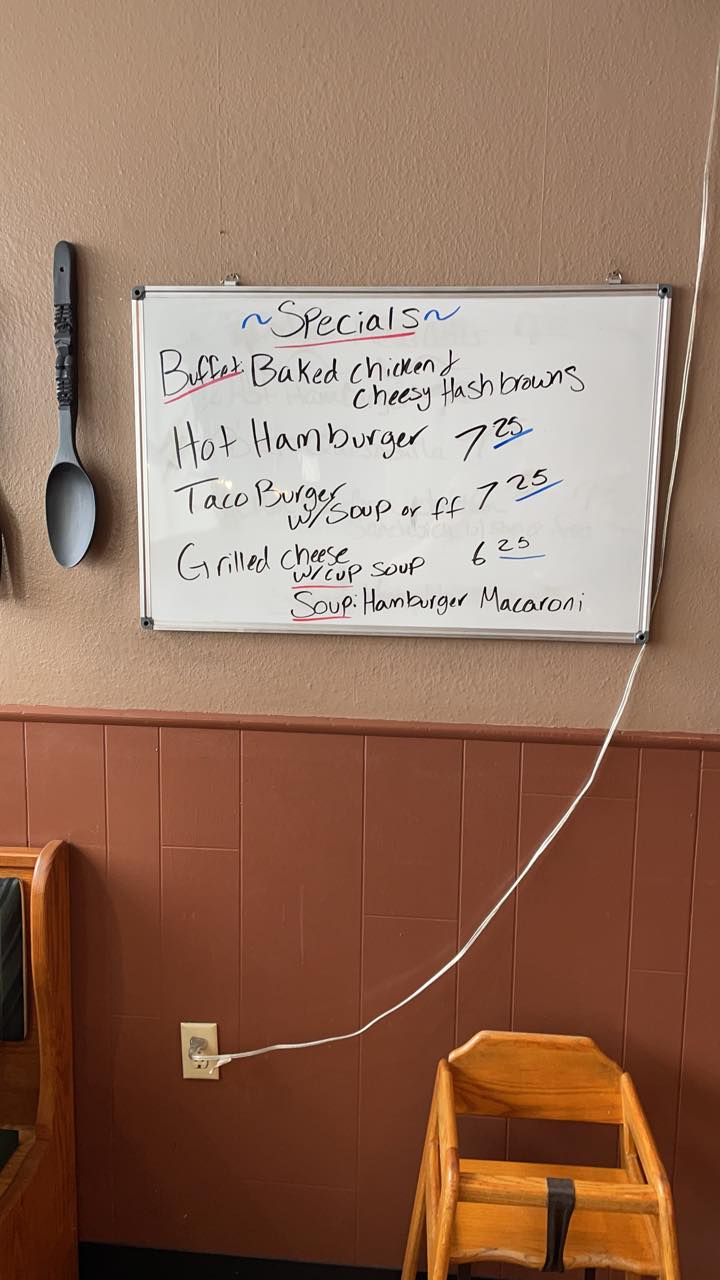 ~Specials~
Buffet: Baked chicken &
Cheesy Hashbrowns
Hot Hamburger 7 25
Taco Burger
w/Soup or ff 7 25
Grilled cheese 6 25
w/cup soup
Soup: Hamburger Macaroni